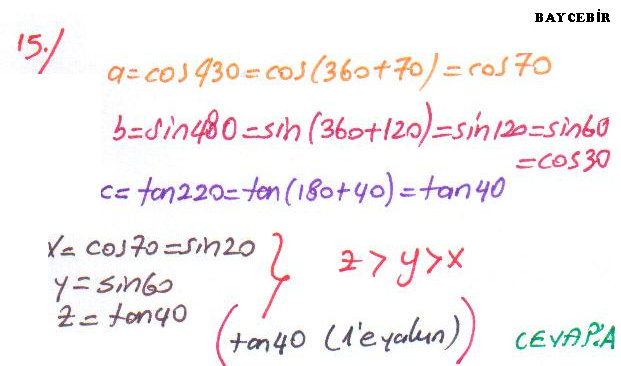 BAYCEBİR
15./
a=cos430=cos(360+70)=cos70
b=sin480=sin(360+120)=sin120=sin60
=cos30
c=tan220=tan(180+40)=tan40
x=cos70=sin20
y=sin60
z=tan40
z>y>x
(tan40 (1'e yakın))
CEVAP:A